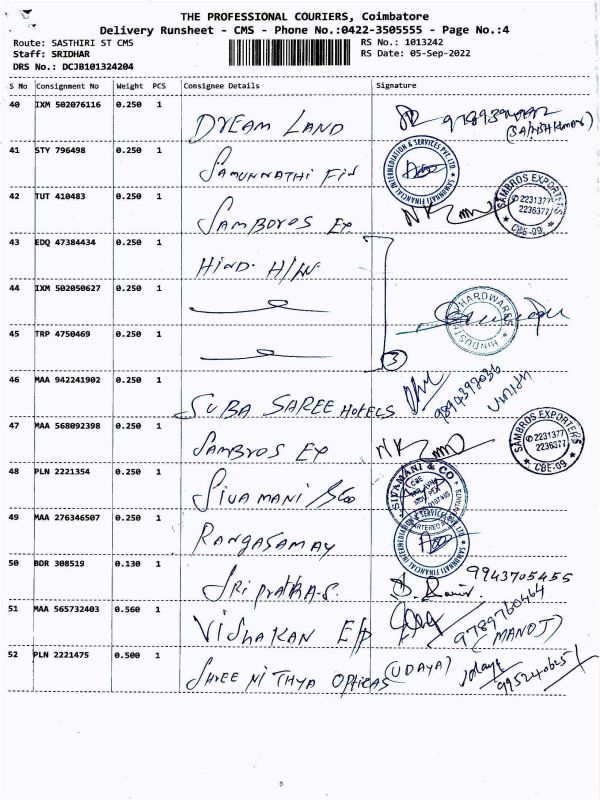 THE PROFESSIONAL COURIERS, Coimbatore
Delivery Runsheet - CMS - Phone No.:0422-3505555 - Page No.:4
Route: SASTHIRI ST CMS RS No.: 1013242
Staff: SRIDHAR RS Date: 05-Sep-2022
DRS No.: DCJB101324204
S No Consignment No Weight PCS Consignee Details Signature
40 IXM 502076116 0.250 1 DREAM LAND
41 STY 796498 0.250 1 SAMUNNATHI Fin
42 TUT 410483 0.250 1 SAMBOROS Ex NK
SAMBROS EXPORTERS 2231377 2236377 CBE-09
43 EDQ 47384434 0.250 1 HIND. H/W
44 IXM 502050627 0.250 1
HINDUSTAN HARDWARES
45 TRP 4750469 0.250 1
3
46 MAA 942241902 0.250 1 SUBA SAREE HOTELS
47 MAA 568092398 0.250 1 SAMBROS Ex NK
SAMBROS EXPORTERS 2231377 2236377 CBE-09
48 PLN 2221354 0.250 1 SIVAMANI &Co
SIVAMANI & CO
49 MAA 276346507 0.250 1 RANGASAMAY
50 BDR 308519 0.130 1 9943705455
51 MAA 565732403 0.560 1 VISHAKAN 9789760464
(MANOJ)
52 PLN 2221475 0.500 1 SHREE NITHYA OPTICAS (UDAYA)